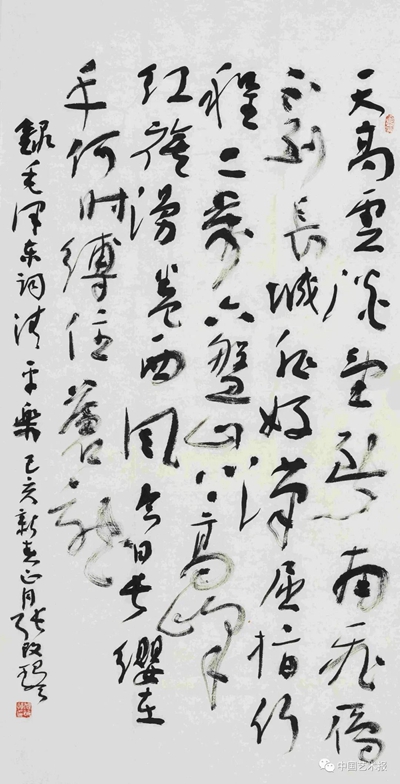 天高雲淡望斷南飛雁
不到長城非好漢屈指行
程二萬六盤山上高峰
红旗漫卷西风今日长纓在
手何时縛住蒼龍
録毛泽东词清平樂己亥新春正月张改琴
中国艺术报